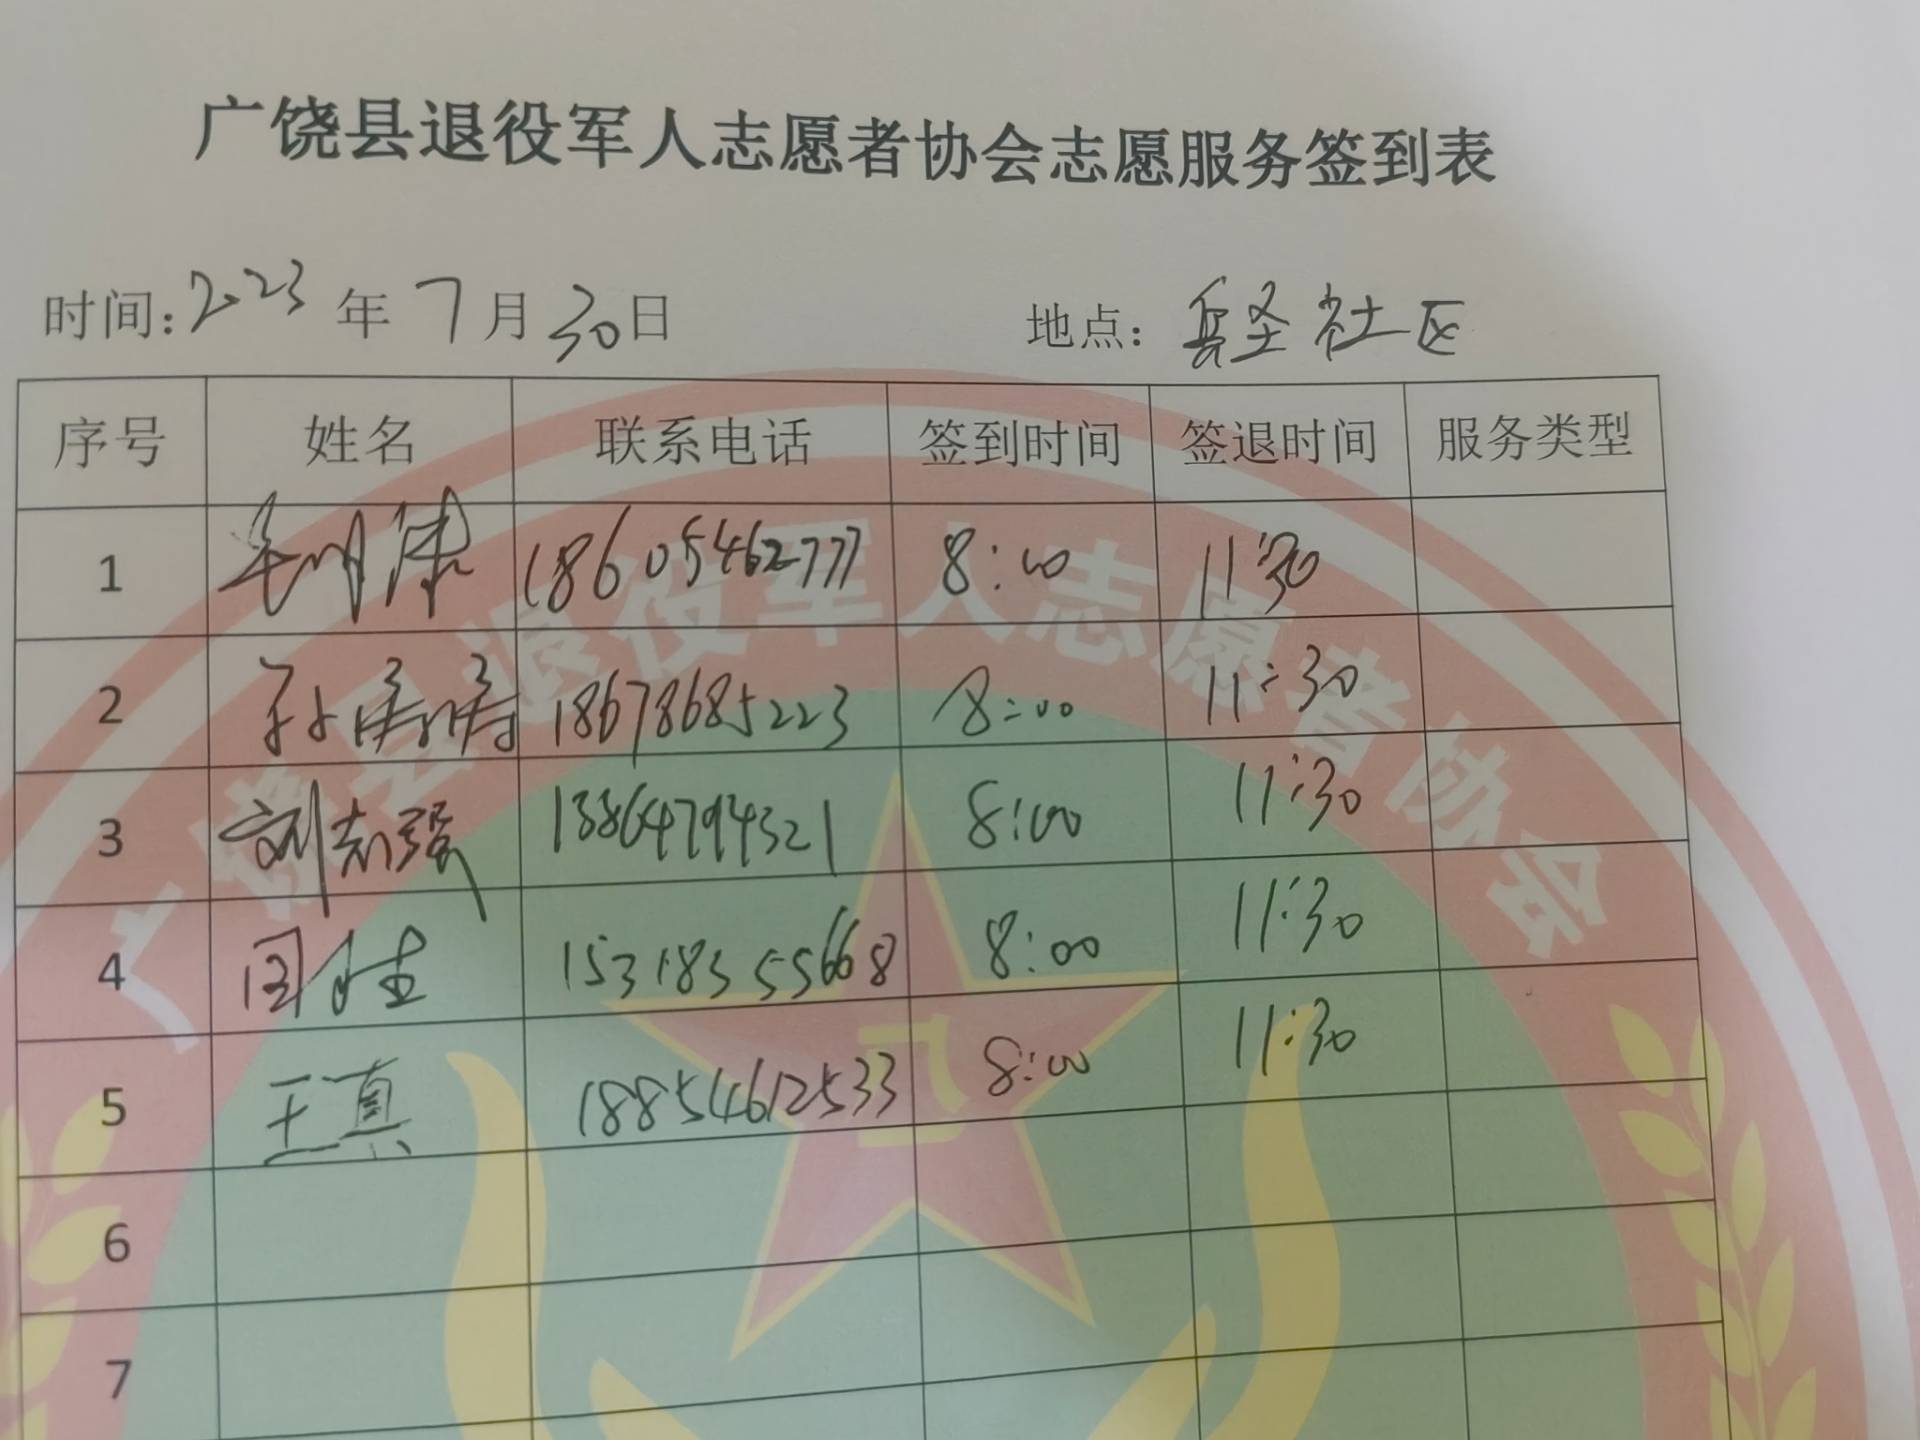 广饶县退役军人志愿者协会志愿服务签到表
时间: 2023 年 7 月 30 日 地点: 社区
序号 姓名 联系电话 签到时间 签退时间 服务类型
1 18605462777 8:00 11:30
2 孙涛涛 18678685223 8:00 11:30
3 刘志强 13864794321 8:00 11:30
4 15318355668 8:00 11:30
5 王真 18854612533 8:00 11:30
6
7
广饶县退役军人志愿者协会
八一